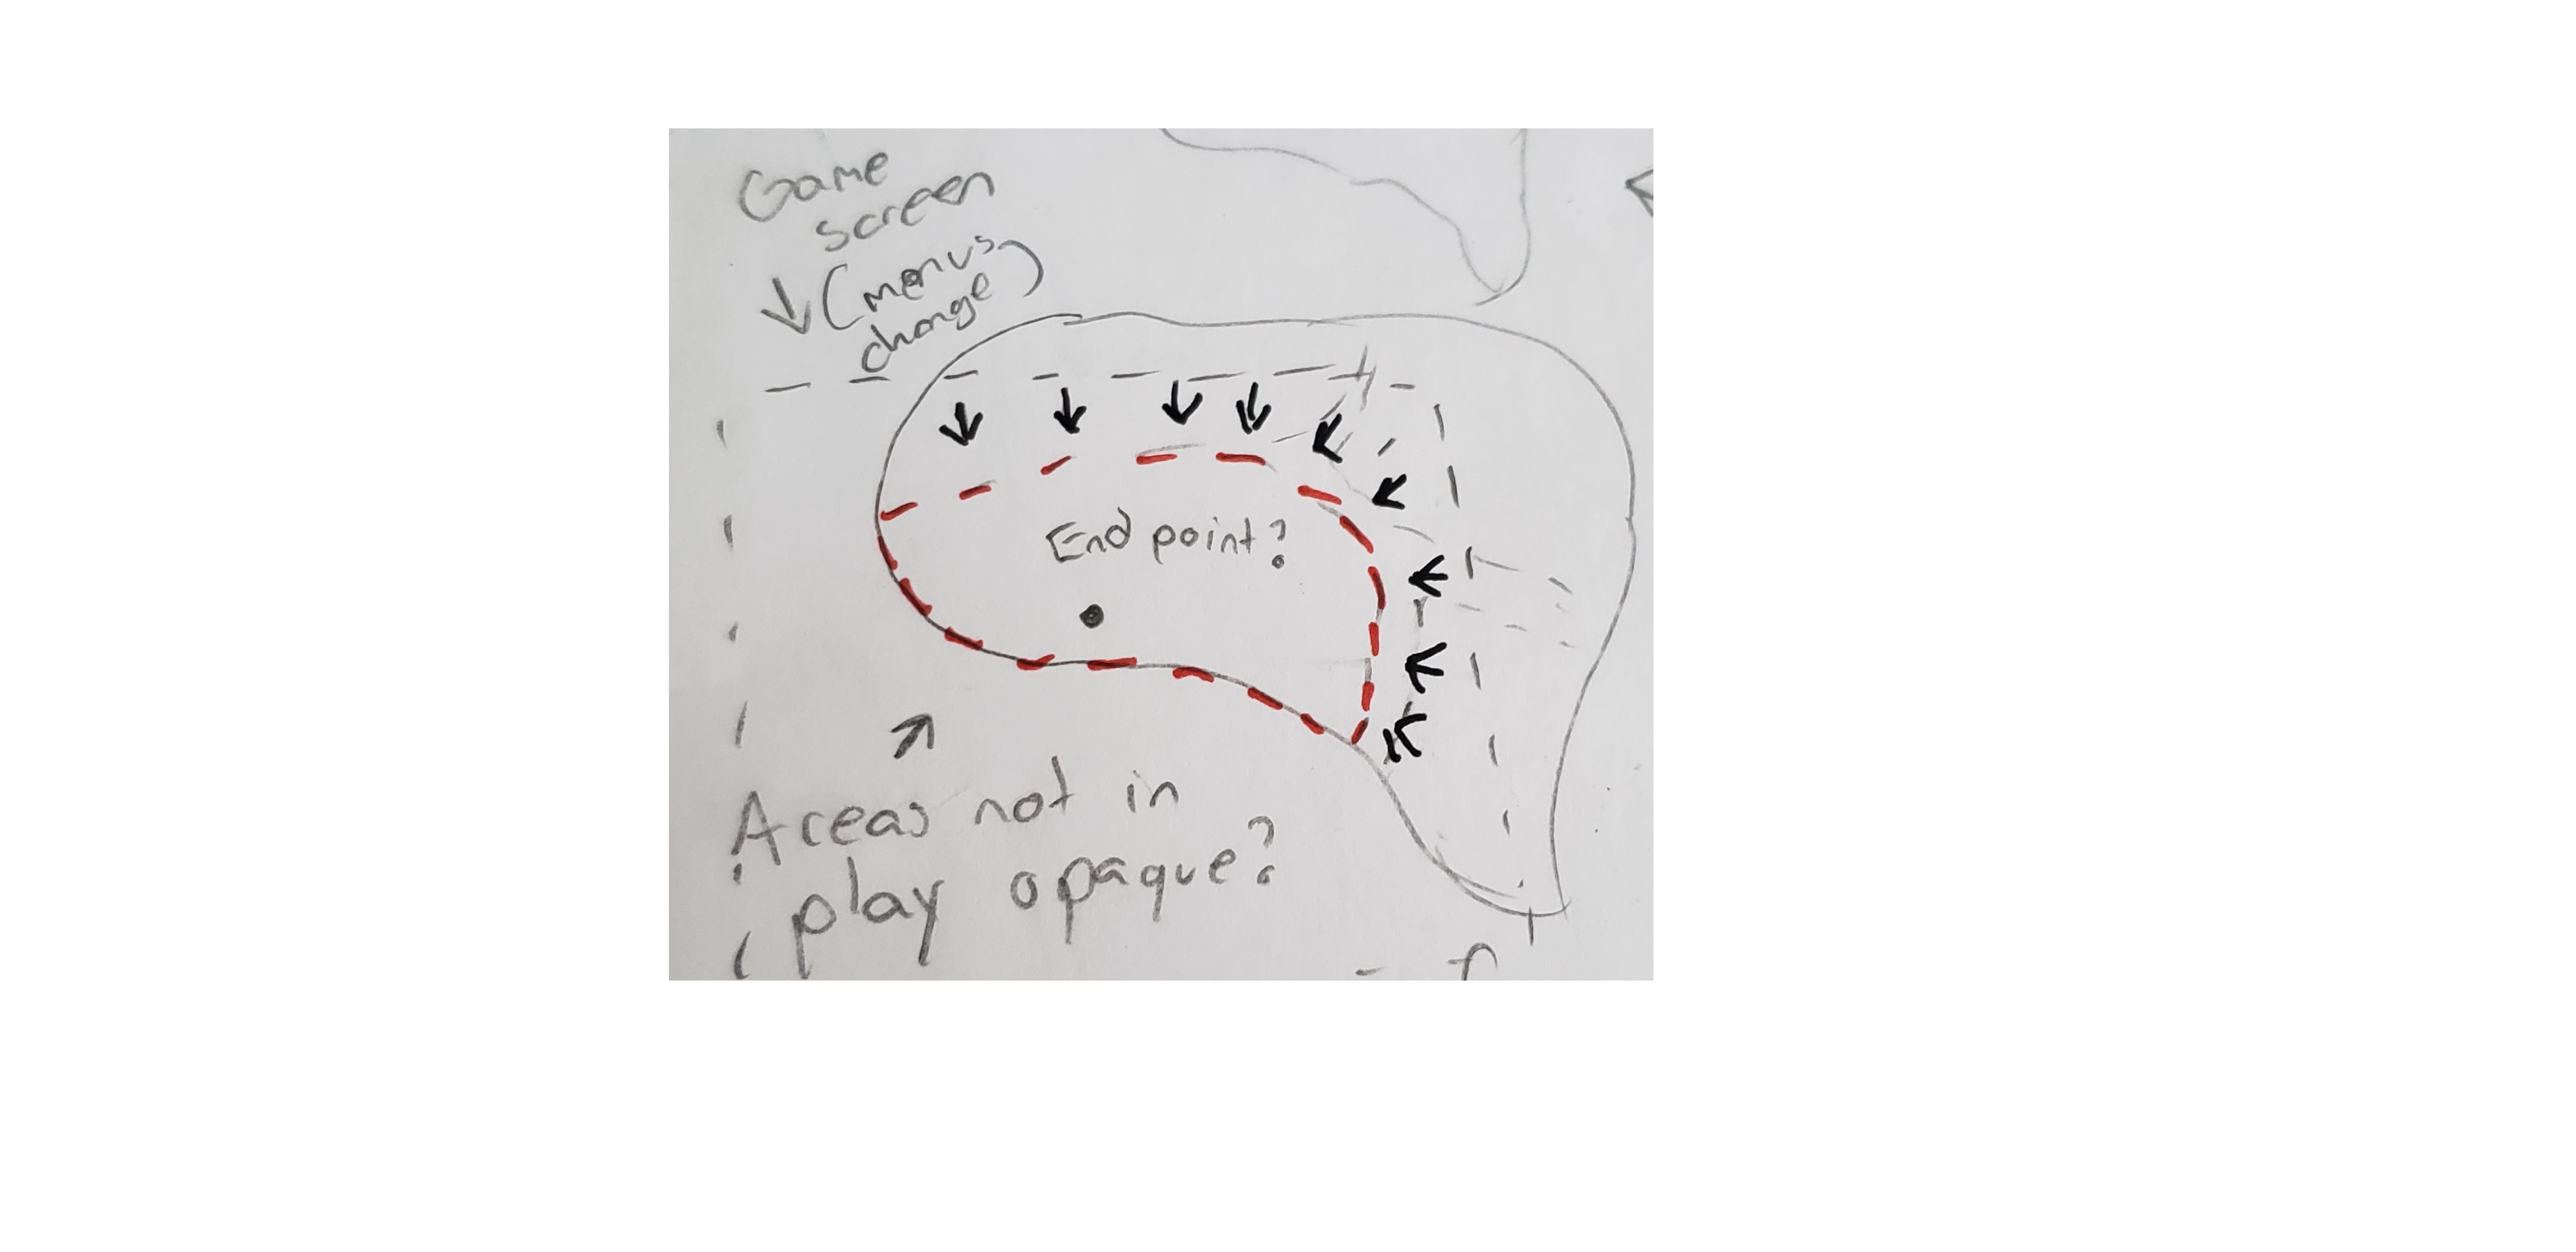 Game
screen
(menus
change)
End point?
Areas not in
play opaque?